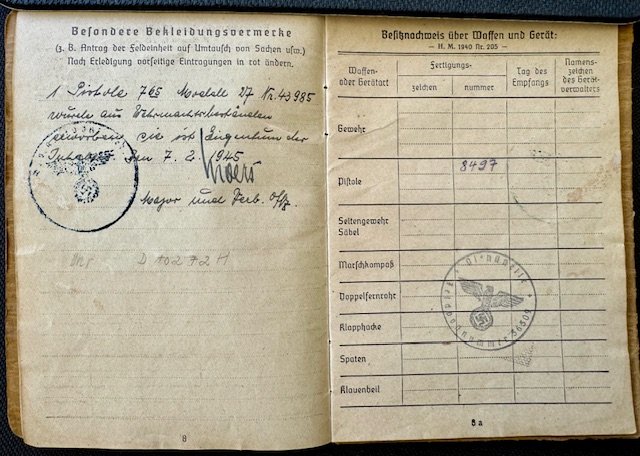 Besondere Bekleidungsvermerke
(z. B. Antrag der Feldeinheit auf Umtausch von Sachen usw.)
Nach Erledigung vorseitige Eintragungen in rot ändern.
1 Pistole 765 Modell 27 Nr. 43985
wurde aus Wehrmachtsbeständen
erworben sie ist Eigentum des
Inhabers den 7. 2. 1945
Major und Verb. Offz.
D 10272 H
8
Besitznachweis über Waffen und Gerät:
— H. M. 1940 Nr. 205 —
Waffen- oder Geräteart
Fertigungs-
zeichen
nummer
Tag des Empfangs
Namens- zeichen des Gerät- verwalters
Gewehr
Pistole
8497
Seitengewehr
Säbel
Marschkompaß
Doppelfernrohr
Klapphacke
Spaten
Klauenbeil
Dienststelle
Feldpostnummer 36509
8a